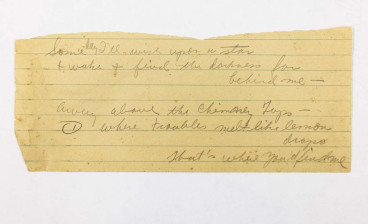 Some day I'll wish upon a star
& wake & find the darkness far
behind me —
Away above the Chimney Tops —
where troubles melt like lemon
drops
that's where you'll find me